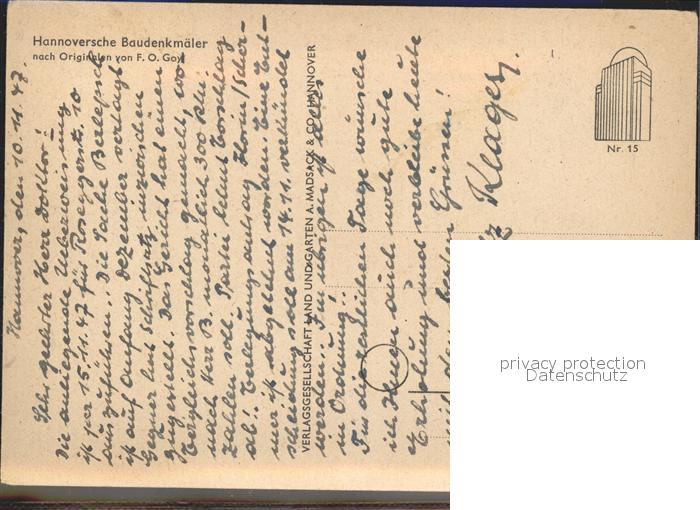 Hannoversche Baudenkmäler
nach Originalen von F. O. Goy
Nr. 15
VERLAGSGESELLSCHAFT LAND UND GARTEN A. MADSACK & CO., HANNOVER
Hannover, den 10.11.47.
Sehr geehrter Herr Doktor!
Die anliegende Ueberweisung
ist per 15.11.47 für Roseggerstr. 10
auszuführen. Die Sache Berlepsch
ist auf Anfang Dezember vertagt
Gegner hat Schriftsatz inzwischen
zugestellt. Das Gericht hat einen
Vergleichsvorschlag gemacht, wo-
nach Herr B. monatlich 300 RM.
zahlen soll. Partei lehnt Vorschlag
ab. Verlegungsantrag Florin/Schor-
mer ist abgelehnt worden. Eine Ent-
scheidung soll am 14.11. verkündet
werden. Im übrigen ist alles
in Ordnung.
Für die restlichen Tage wünsche
ich Ihnen auch noch gute
Erholung und verbleibe heute
mit den besten Grüssen!
Klages.
privacy protection
Datenschutz